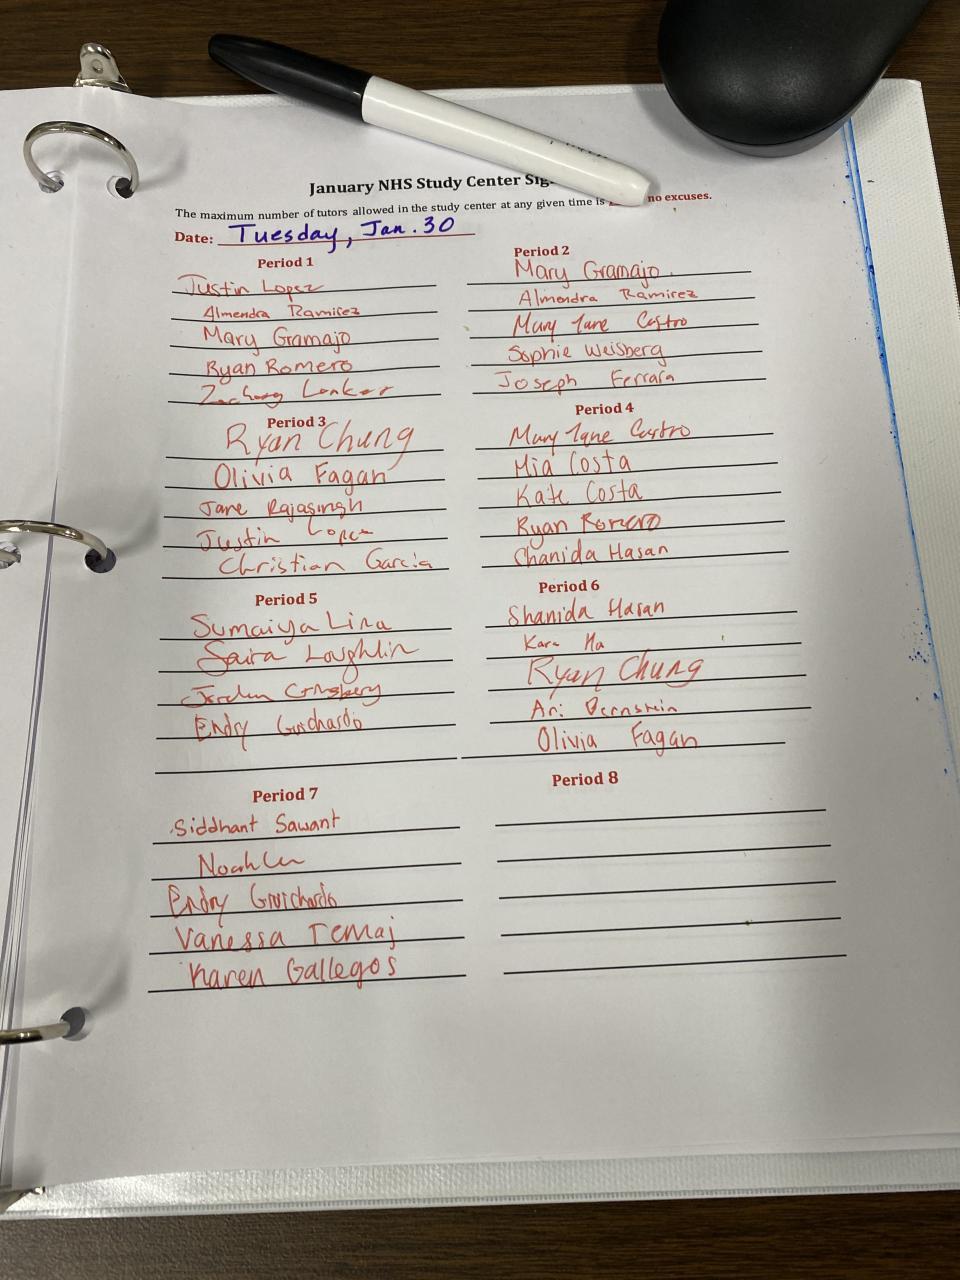 January NHS Study Center Sig
The maximum number of tutors allowed in the study center at any given time is no excuses.
Date: Tuesday, Jan. 30
Period 1
Justin Lopez
Almendra Ramirez
Mary Gramajo
Ryan Romero
Zachary
Period 2
Mary Gramajo
Almendra Ramirez
Mary Jane Castro
Sophie Weisberg
Joseph Ferrara
Period 3
Ryan Chung
Olivia Fagan
Jane Rajasingh
Justin Lopez
Christian Garcia
Period 4
Mary Jane Castro
Mia Costa
Kate Costa
Ryan Romero
Shanida Hasan
Period 5
Sumaiya Lina
Saira Loughlin
Endry Guichardo
Period 6
Shanida Hasan
Kara Ha
Ryan Chung
Ari Bernstein
Olivia Fagan
Period 7
Siddhant Sawant
Noah
Endry Guichardo
Vanessa Temaj
Karen Gallegos
Period 8